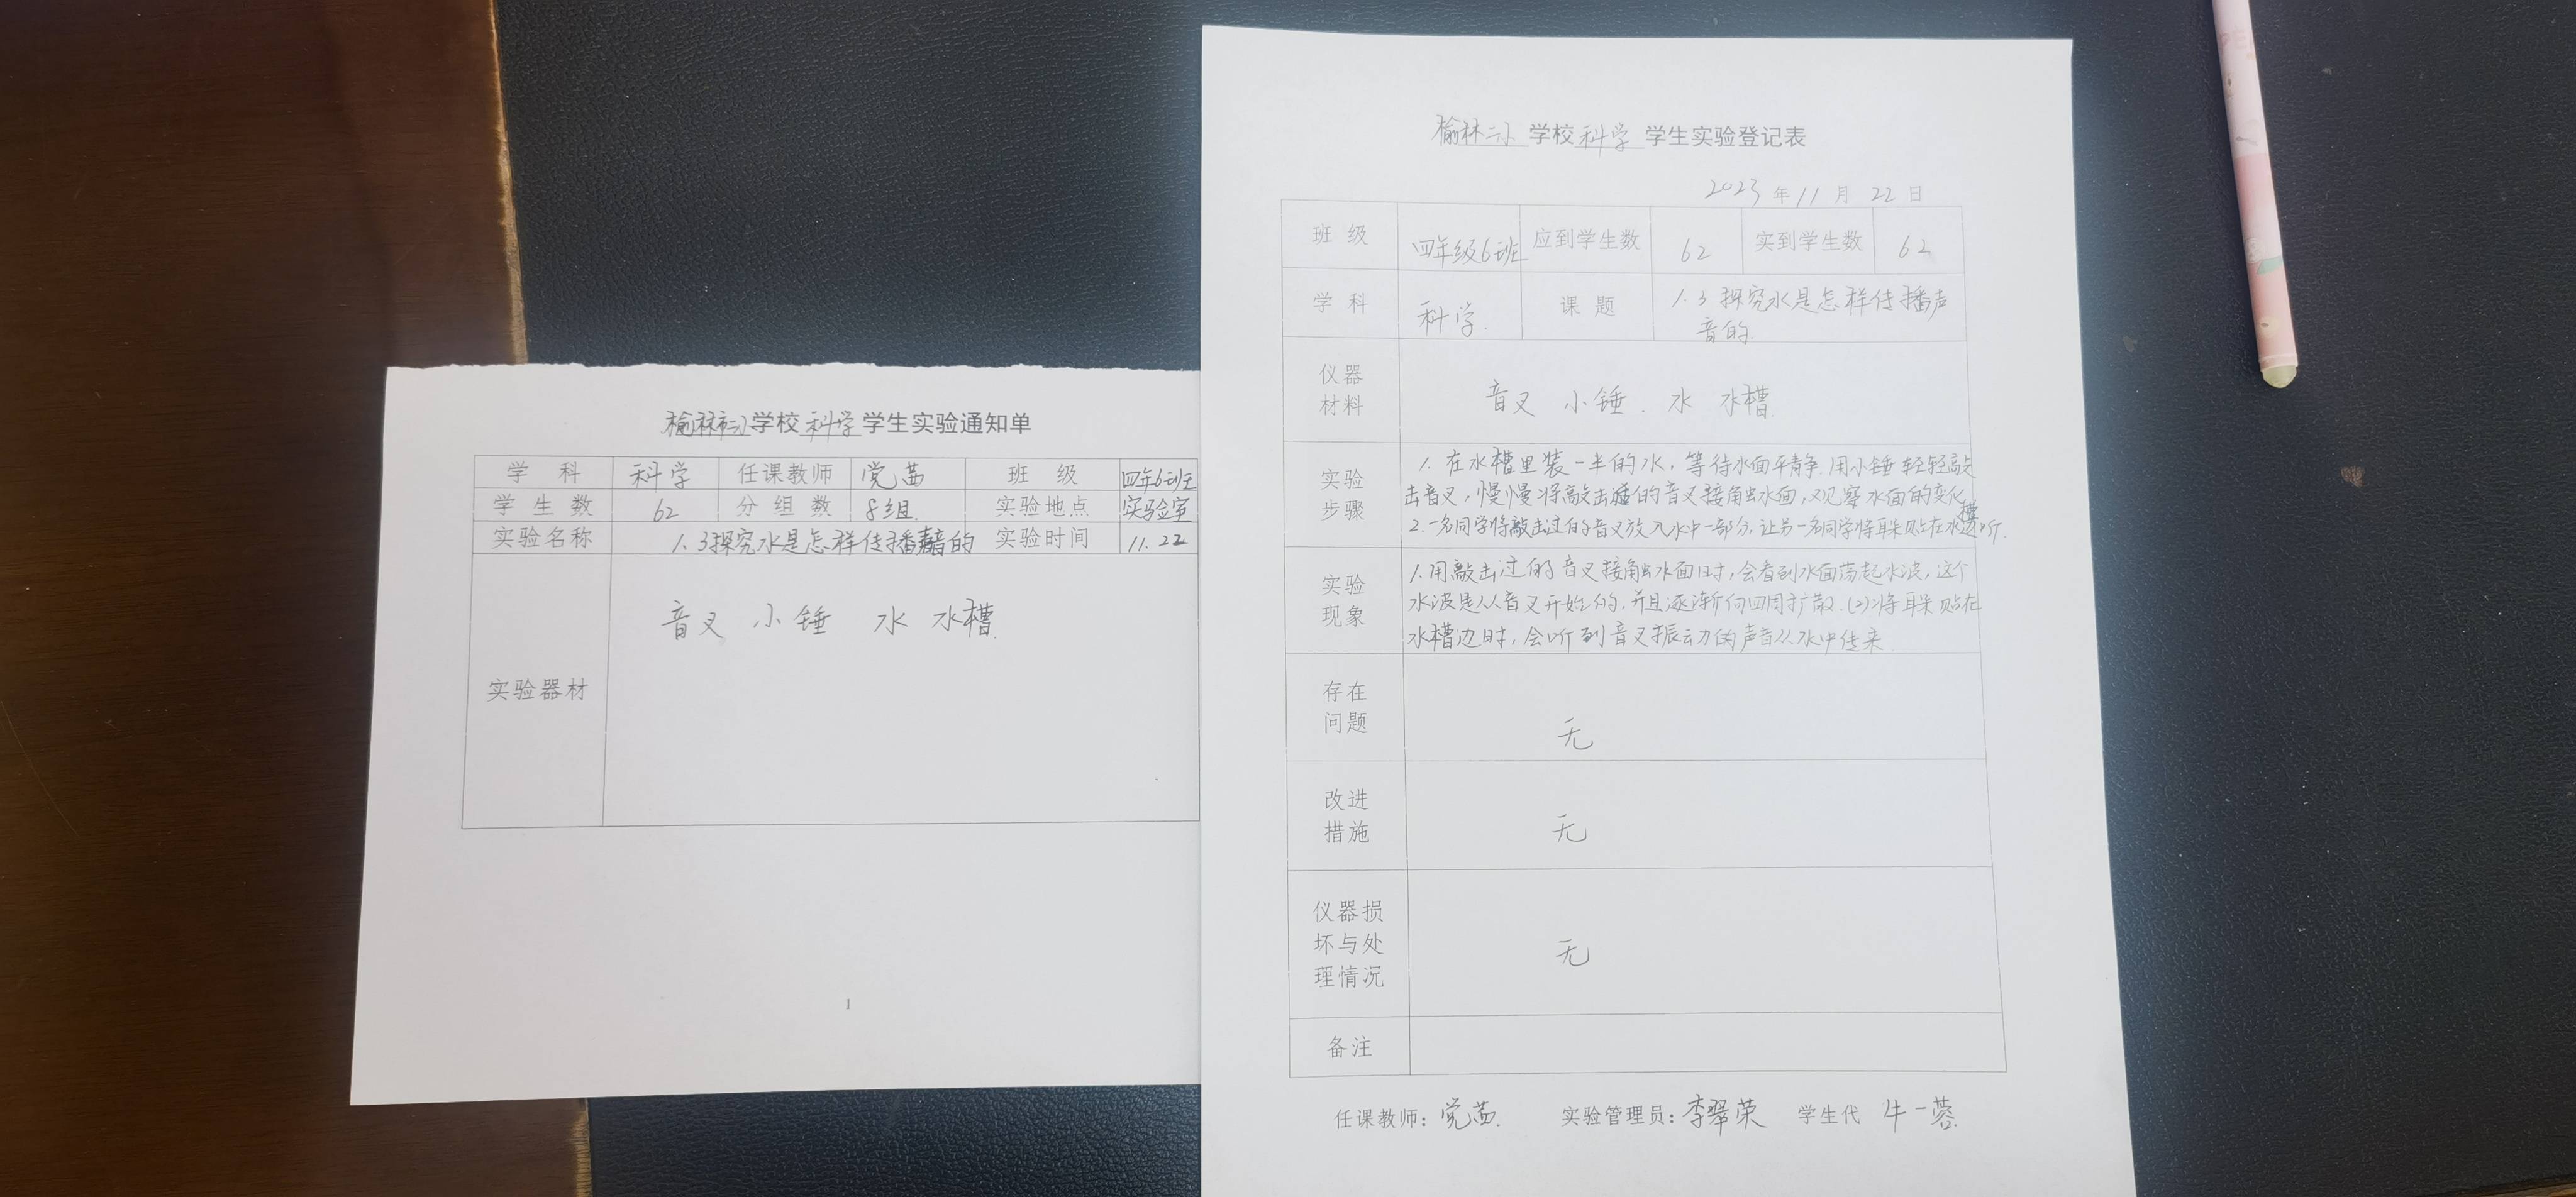 榆林市二小学校科学学生实验通知单
学 科 科学 任课教师 党茜 班 级 四年6班
学 生 数 62 分 组 数 8组 实验地点 实验室
实验名称 1.3探究水是怎样传播声音的 实验时间 11.22
实验器材 音叉 小锤 水 水槽
1
榆林二小 学校 科学 学生实验登记表
2023 年 11 月 22 日
班 级 四年级6班 应到学生数 62 实到学生数 62
学 科 科学. 课 题 1.3 探究水是怎样传播声
音的.
仪器
材料
音叉 小锤. 水 水槽
实验
步骤
1. 在水槽里装一半的水,等待水面平静.用小锤轻轻敲
击音叉,慢慢将敲击过的音叉接触水面,观察水面的变化
2.一名同学将敲击过的音叉放入水中一部分,让另一名同学将耳朵贴在水槽边听.
实验
现象
1.用敲击过的音叉接触水面时,会看到水面荡起水波,这个
水波是从音叉开始的,并且逐渐向四周扩散.(2)将耳朵贴在
水槽边时,会听到音叉振动的声音从水中传来.
存在
问题
无
改进
措施
无
仪器损
坏与处
理情况
无
备注
任课教师:党茜. 实验管理员:李翠荣 学生代 牛一蓉